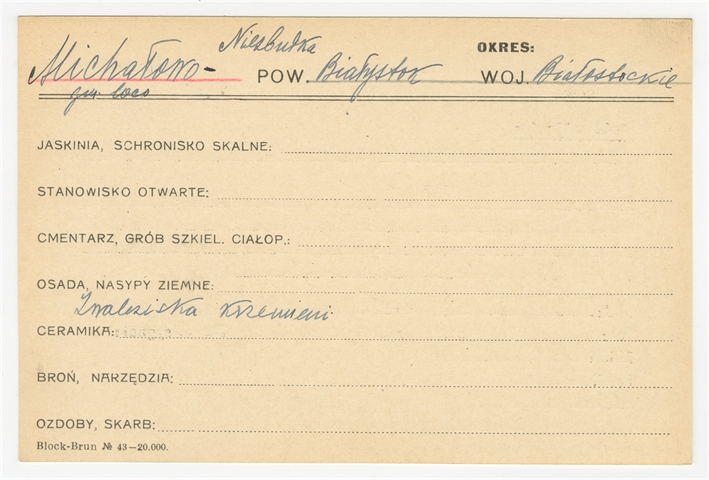 Niezbudka
OKRES:
Michałowo-
POW. Białystok WOJ. Białostockie
gm. loco
JASKINIA, SCHRONISKO SKALNE:
STANOWISKO OTWARTE:
CMENTARZ, GRÓB SZKIEL. CIAŁOP.:
OSADA, NASYPY ZIEMNE:
Znaleziska krzemieni
CERAMIKA:
BROŃ, NARZĘDZIA:
OZDOBY, SKARB:
Block-Brun № 43—20.000.